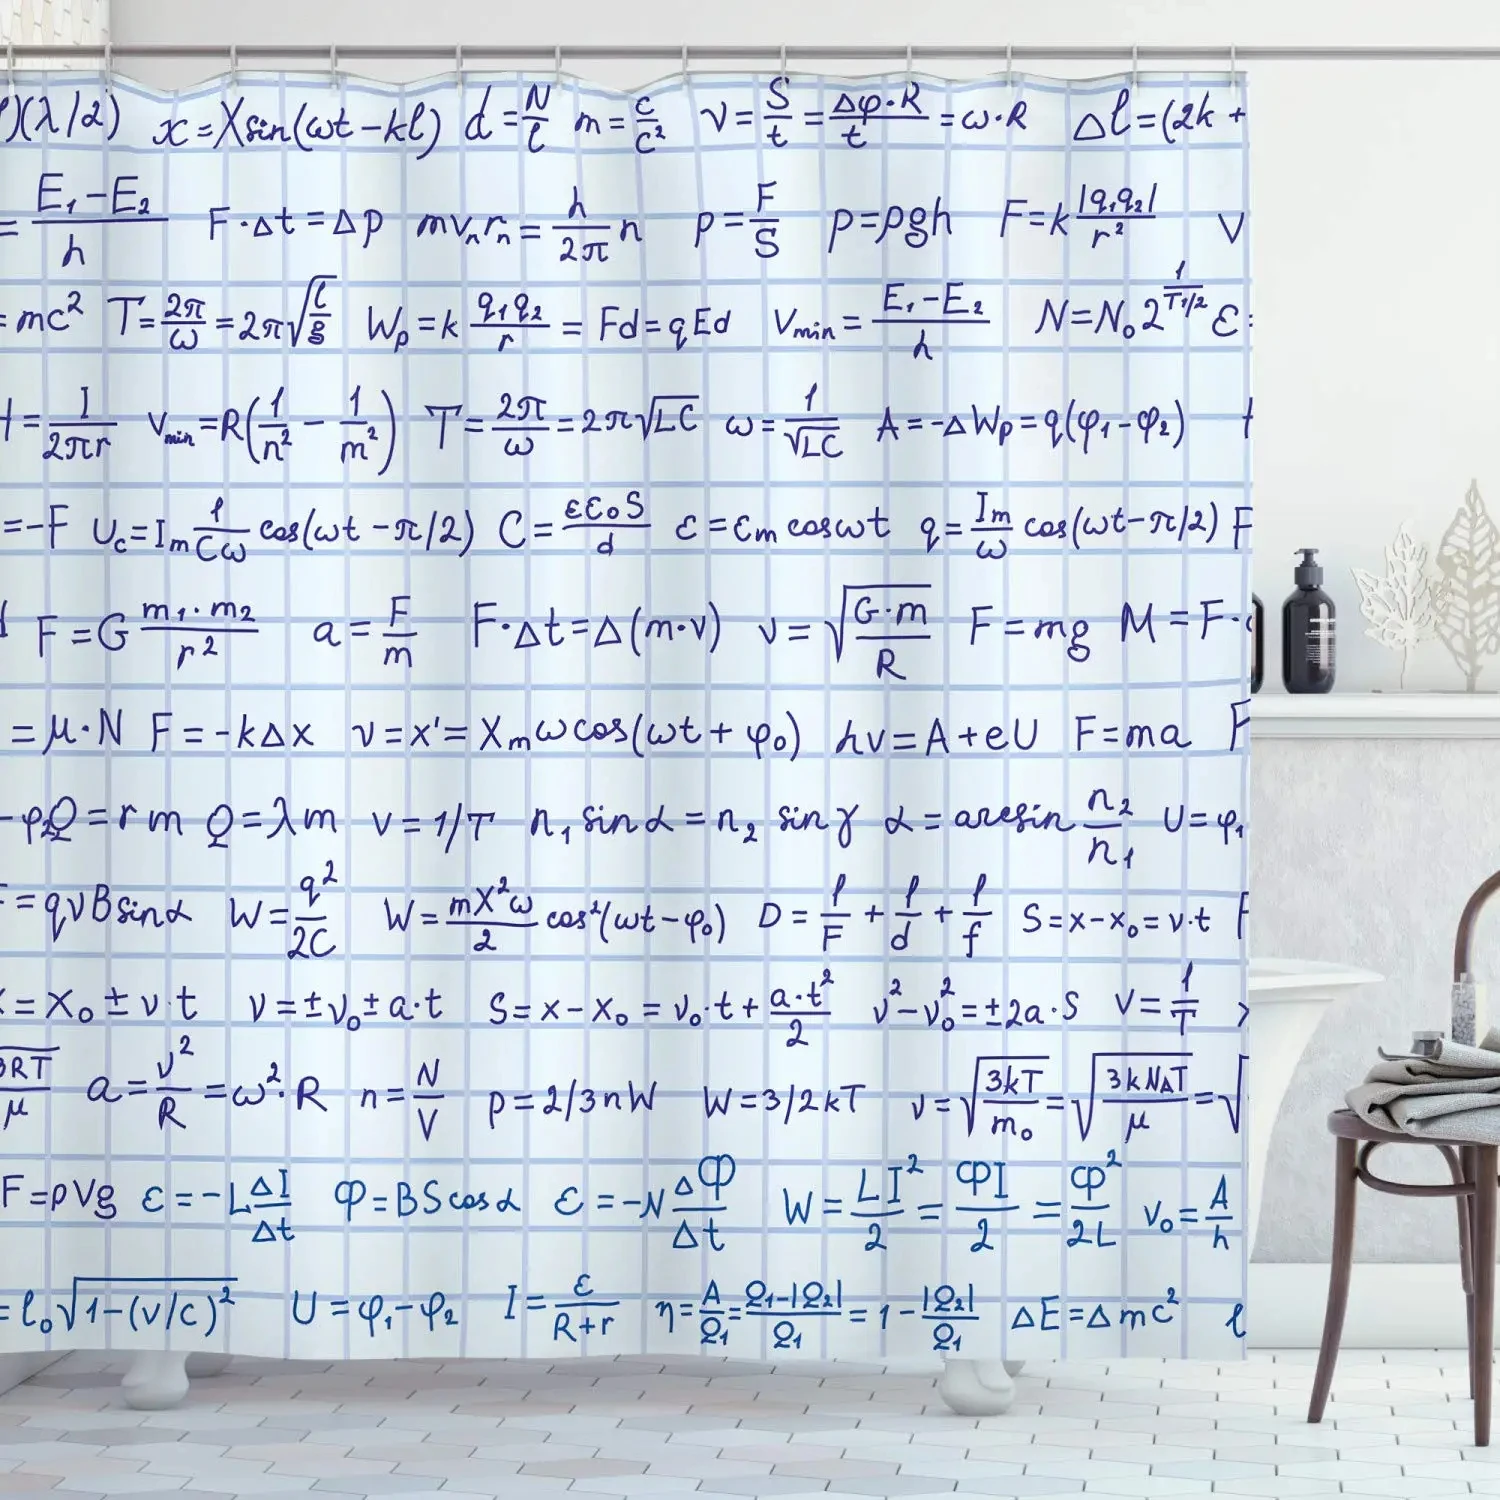 )(λ/2) x=Xsin(ωt-kl) d=N/l m=c/c² v=S/t=Δφ·R/t=ω·R Δl=(2k+
=E₁-E₂/h F·Δt=Δp mvₙrₙ=h/2π n p=F/S p=ρgh F=k|q₁q₂|/r² V
=mc² T=2π/ω=2π√l/g Wp=k q₁q₂/r=Fd=qEd Vmin=E₁-E₂/h N=N₀2^1/T1/2 ε=
=I/2πr Vmin=R(1/n²-1/m²) T=2π/ω=2π√LC ω=1/√LC A=-ΔWp=q(φ₁-φ₂)
=-F Uc=Im 1/Cω cos(ωt-π/2) C=εε₀S/d ε=εm cosωt q=Im/ω cos(ωt-π/2) F
F=G m₁·m₂/r² a=F/m F·Δt=Δ(m·v) v=√G·m/R F=mg M=F·
=μ·N F=-kΔx v=x'=Xmωcos(ωt+φ₀) hv=A+eU F=ma F
-φ₂ Q=rm Q=λm v=1/T n₁sinα=n₂sinγ α=arcsin n₂/n₁ U=φ₁
=qvBsinα W=q²/2C W=mX²ω/2 cos²(ωt-φ₀) D=1/F+1/d+1/f S=x-x₀=v·t F
=x₀±v·t v=±v₀±a·t S=x-x₀=v₀·t+a·t²/2 v²-v₀²=±2a·S V=1/T
3RT/μ a=v²/R=ω²·R n=N/V p=2/3nW W=3/2kT v=√3kT/m₀=√3kNAT/μ=√
F=ρVg ε=-LΔI/Δt Φ=BScosα ε=-NΔΦ/Δt W=LI²/2=ΦI/2=Φ²/2L v₀=A/h
=l₀√1-(v/c)² U=φ₁-φ₂ I=ε/R+r η=A/Q₁=Q₁-|Q₂|/Q₁=1-|Q₂|/Q₁ ΔE=Δmc² l